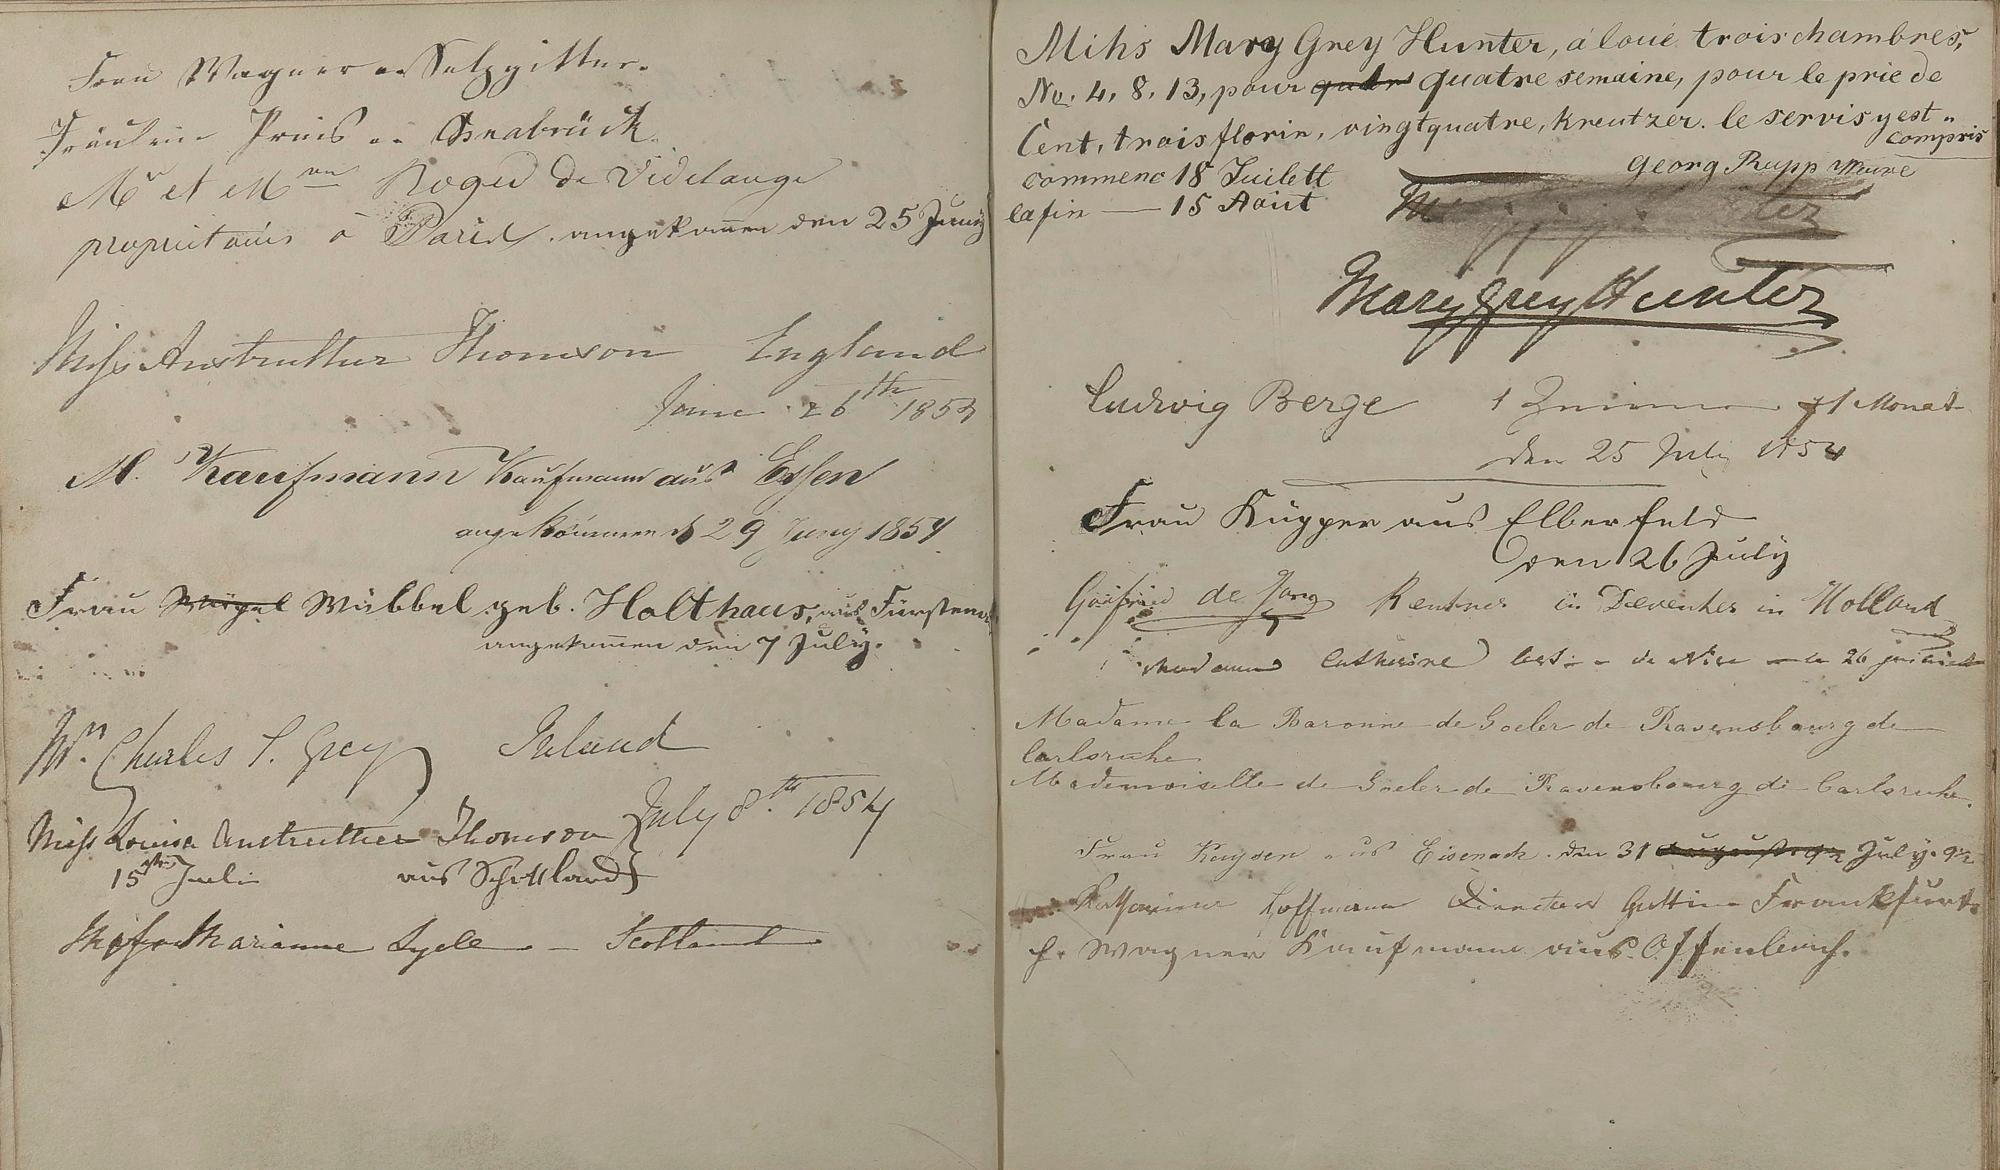 Frau Wagner a. Salzgitter.
Fräulein Preis a. Osnabrück.
Mr et Mme Roged de Videlange
propriétaires à Paris. angekom̄en den 25 Juny
Miss Anstruther Thomson England
June 26th 1854
M. Kaufmann Kaufmann aus Essen
angekommen d 29 Juny 1854
Frau Wübbel geb. Holthaus, aus Fürstenau
angekom̄en den 7 July.
Mrs Charles S. Grey Ireland
July 8th. 1854
Miss Louisa Anstruther Thomson
15ten Juli aus Schottland
Miss Marianne Lyell - Scotland
Mihs Mary Grey Hunter, á loué trois chambres,
No. 4, 8, 13, pour quatre semaine, pour le prie de
Cent, trois florin, vingtquatre, kreutzer. le servis y est
compris
Georg Rupp
commenc 18 Juilett
la fin — 15 Aout
Mary Grey Hunter
Ludwig Berge 1 Zimmer 1 Monat
den 25 July 1854
Frau Küpper aus Elberfeld
den 26 July
de Jong Rentner in Deventer in Holland
Madame Catherine de Nice le 26
Madame la Baronne de Goeler de Ravensbourg de
Carlsruhe
Mademoiselle de Goeler de Ravensbourg de Carlsruhe.
Frau Kaysen aus Eisenach. den 31 July.
Katharina Hoffmann Directors Gattin Frankfurt.
F. Wagner Kaufmann aus Offenbach.